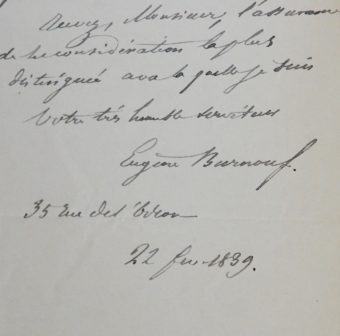 recevez, Monsieur, l'assurance
de la considération la plus
distinguée avec laquelle je suis
Votre très humble serviteur
Eugène Burnouf.
35 rue de l'Odéon
22 fev. 1839.